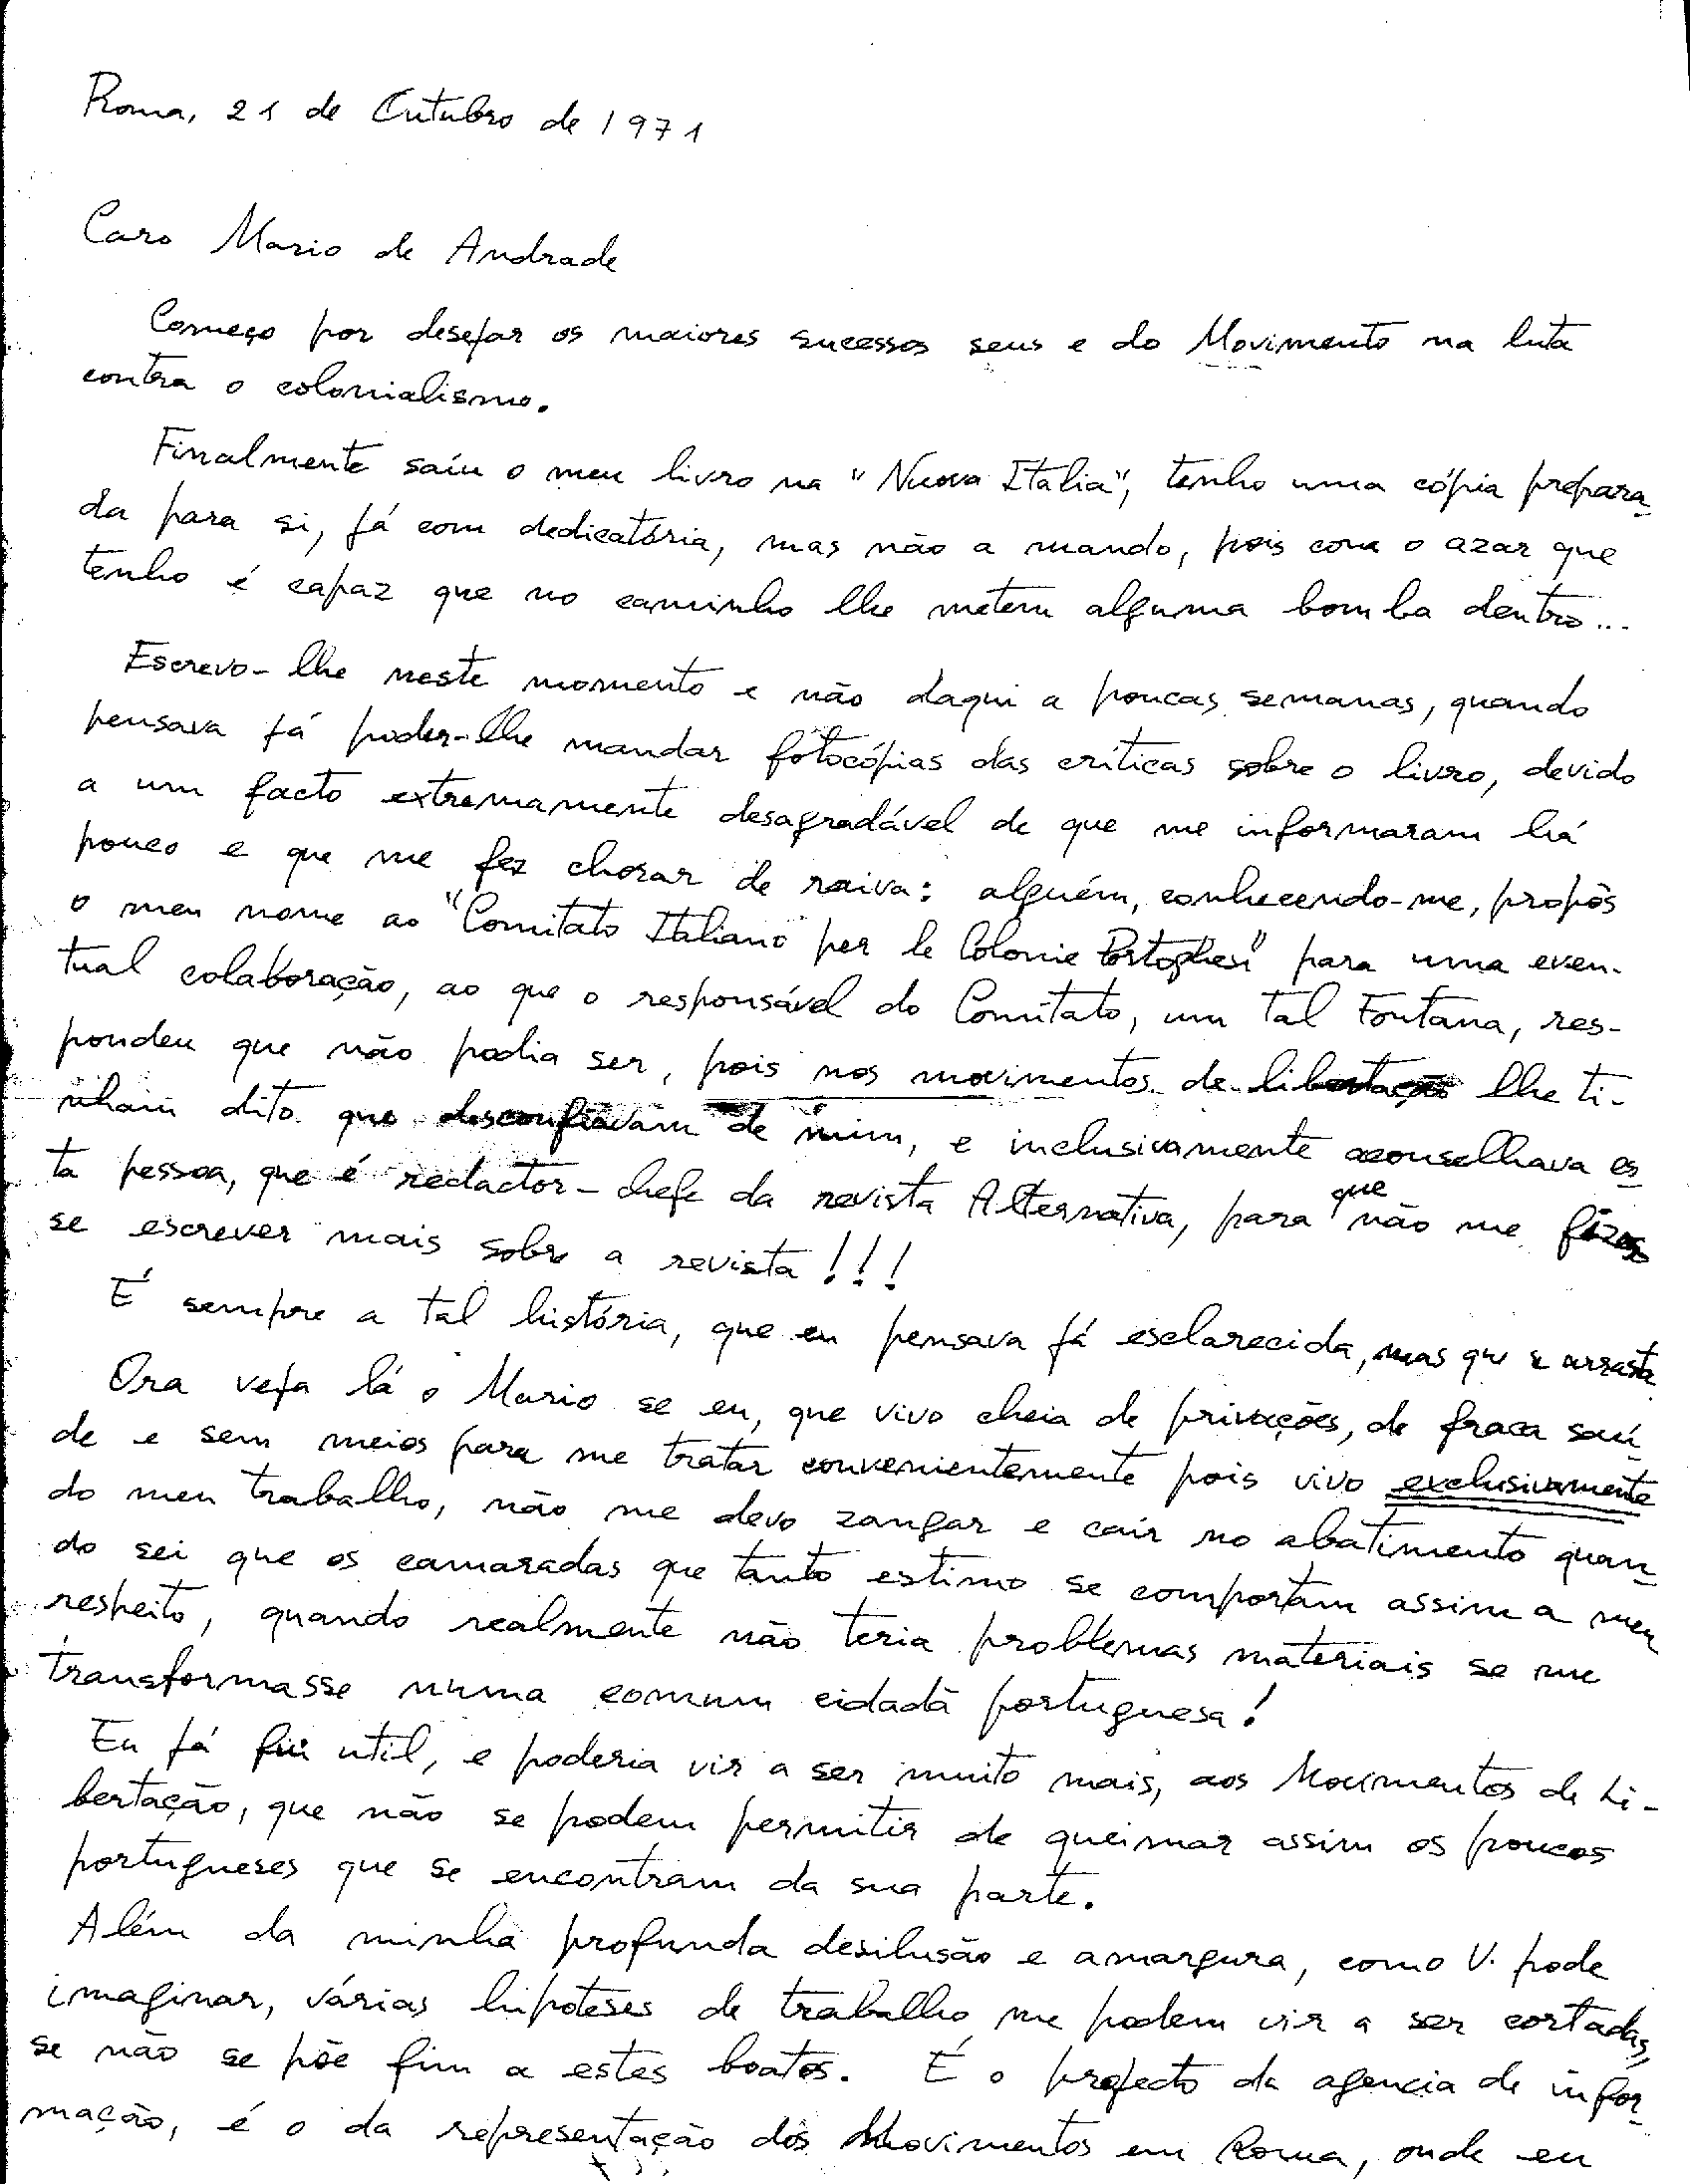 Roma, 21 de Outubro de 1971
Caro Mario de Andrade
Começo por desejar os maiores sucessos seus e do Movimento na luta
contra o colonialismo.
Finalmente saíu o meu livro na "Nuova Italia", tenho uma cópia prepara-
da para si, já com dedicatória, mas não a mando, pois com o azar que
tenho é capaz que no caminho lhe metem alguma bomba dentro...
Escrevo-lhe neste momento e não daqui a poucas semanas, quando
pensava já poder-lhe mandar fotocópias das críticas sobre o livro, devido
a um facto extremamente desagradável de que me informaram há
pouco e que me fez chorar de raiva: alguém, conhecendo-me, propôs
o meu nome ao "Comitato Italiano per le Colonie Portoghesi" para uma even-
tual colaboração, ao que o responsável do Comitato, um tal Fontana, res-
pondeu que não podia ser, pois nos movimentos de libertação lhe ti-
nham dito que desconfiavam de mim, e inclusivamente aconselhava es-
ta pessoa, que é redactor-chefe da revista Alternativa, para que não me fizes
se escrever mais sobre a revista!!!
É sempre a tal história, que eu pensava já esclarecida, mas que se arrasta.
Ora veja lá o Mario se eu, que vivo cheia de privações, de fraca saú-
de e sem meios para me tratar convenientemente pois vivo exclusivamente
do meu trabalho, não me devo zangar e cair no abatimento quan-
do sei que os camaradas que tanto estimo se comportam assim a meu
respeito, quando realmente não teria problemas materiais se me
transformasse numa comum cidadã portuguesa!
Eu já fui util, e poderia vir a ser muito mais, aos Movimentos de Li-
bertação, que não se podem permitir de queimar assim os poucos
portugueses que se encontram da sua parte.
Além da minha profunda desilusão e amargura, como V. pode
imaginar, várias hipoteses de trabalho me podem vir a ser cortadas,
se não se põe fim a estes boatos. É o projecto da agencia de infor-
mação, é o da representação dos Movimentos em Roma, onde eu